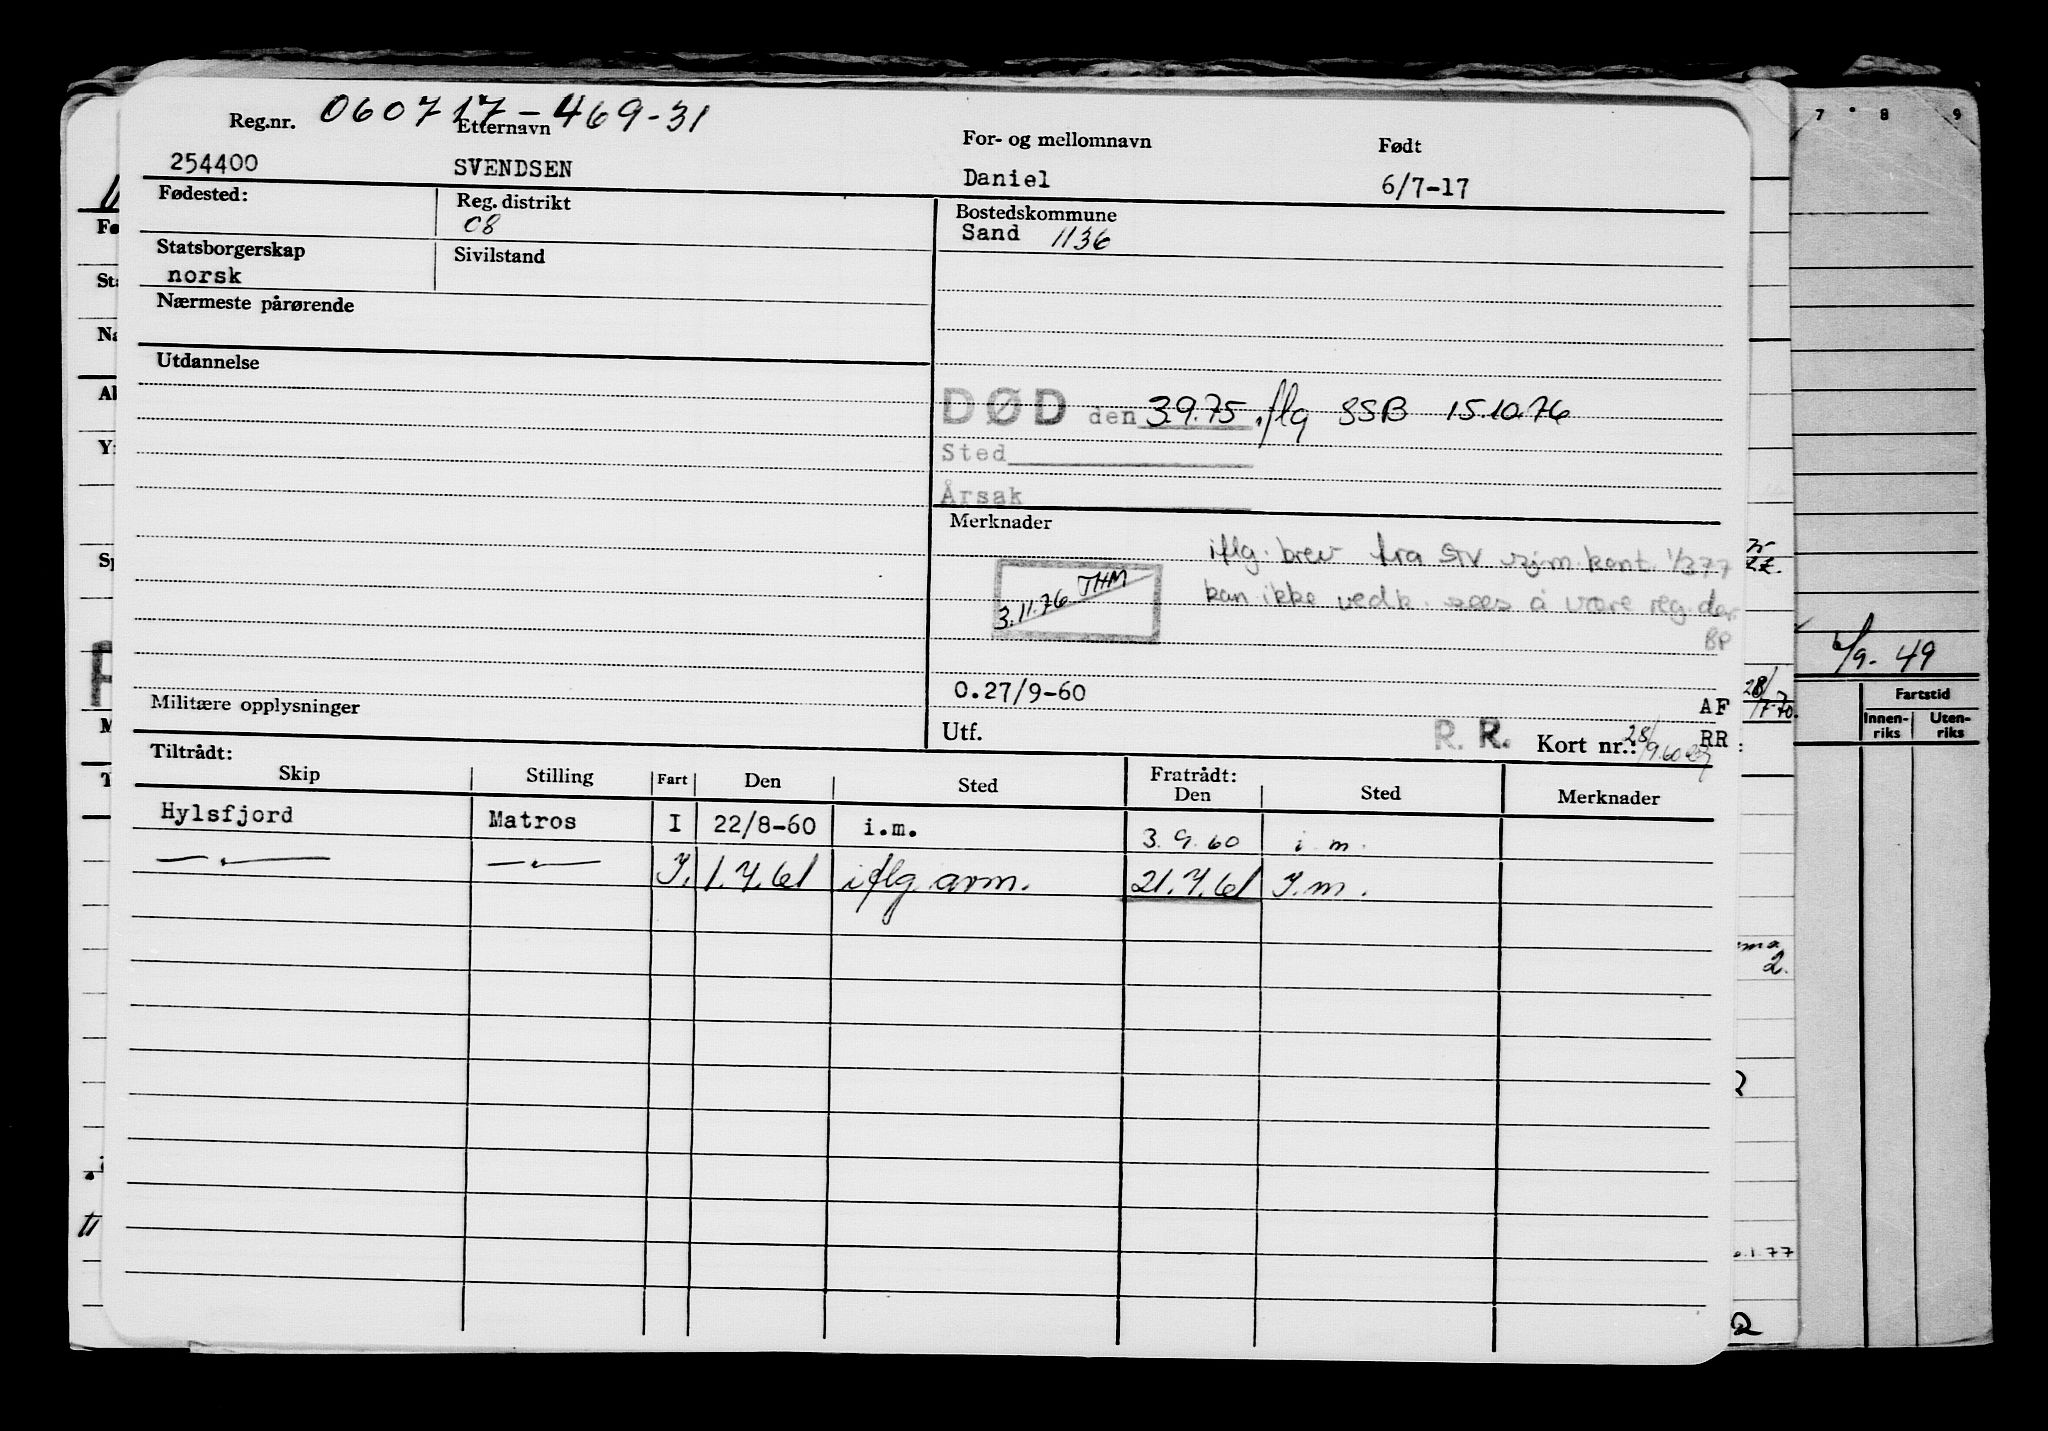 Reg.nr. 060717-469-31
Etternavn For- og mellomnavn Født
254400 SVENDSEN Daniel 6/7-17
Fødested: Reg. distrikt 08
Bostedskommune
Sand 1136
Statsborgerskap Sivilstand
norsk
Nærmeste pårørende
Utdannelse
DØD den 3.9.75. iflg SSB 15.10.76
Sted
Årsak
Merknader
iflg. brev fra sjm.kont. 1/3 77
kan ikke vedk. sees å være reg. der.
BP
3.11.76 THM
O.27/9-60
AF
Militære opplysninger
Utf. R. R. Kort nr.: RR :
28/9.60
Tiltrådt: Fratrådt:
Skip Stilling Fart Den Sted Den Sted Merknader
Hylsfjord Matros I 22/8-60 i.m. 3.9.60 i.m.
— " — — " — I. 1.7.61 iflg. avm. 21.7.61 I.m.
7 8 9
6/9-49
28/7-70.
Fartstid
Innen-
riks
Uten-
riks
2.
2